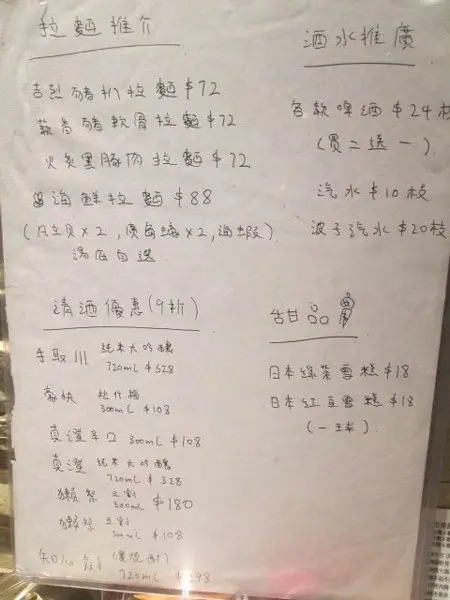 拉麵推介
吉烈豬扒拉麵 $72
蒜香豬軟骨拉麵 $72
火炙黑豚肉拉麵 $72
海鮮拉麵 $88
(凡立貝×2, 廣島蠔×2, 海蝦)
湯底自選
酒水推廣
各款啤酒 $24枝
(買二送一)
汽水 $10枝
波子汽水 $20枝
清酒優惠(9折)
手取川 純米大吟釀
720mL $328
300mL $108
真澄辛口 300mL $108
真澄 純米大吟釀
720mL $328
獺祭 三割
300mL $180
獺祭 五割
300mL $108
720mL $398
甜品
日本綠茶雪糕 $18
日本紅豆雪糕 $18
(一球)